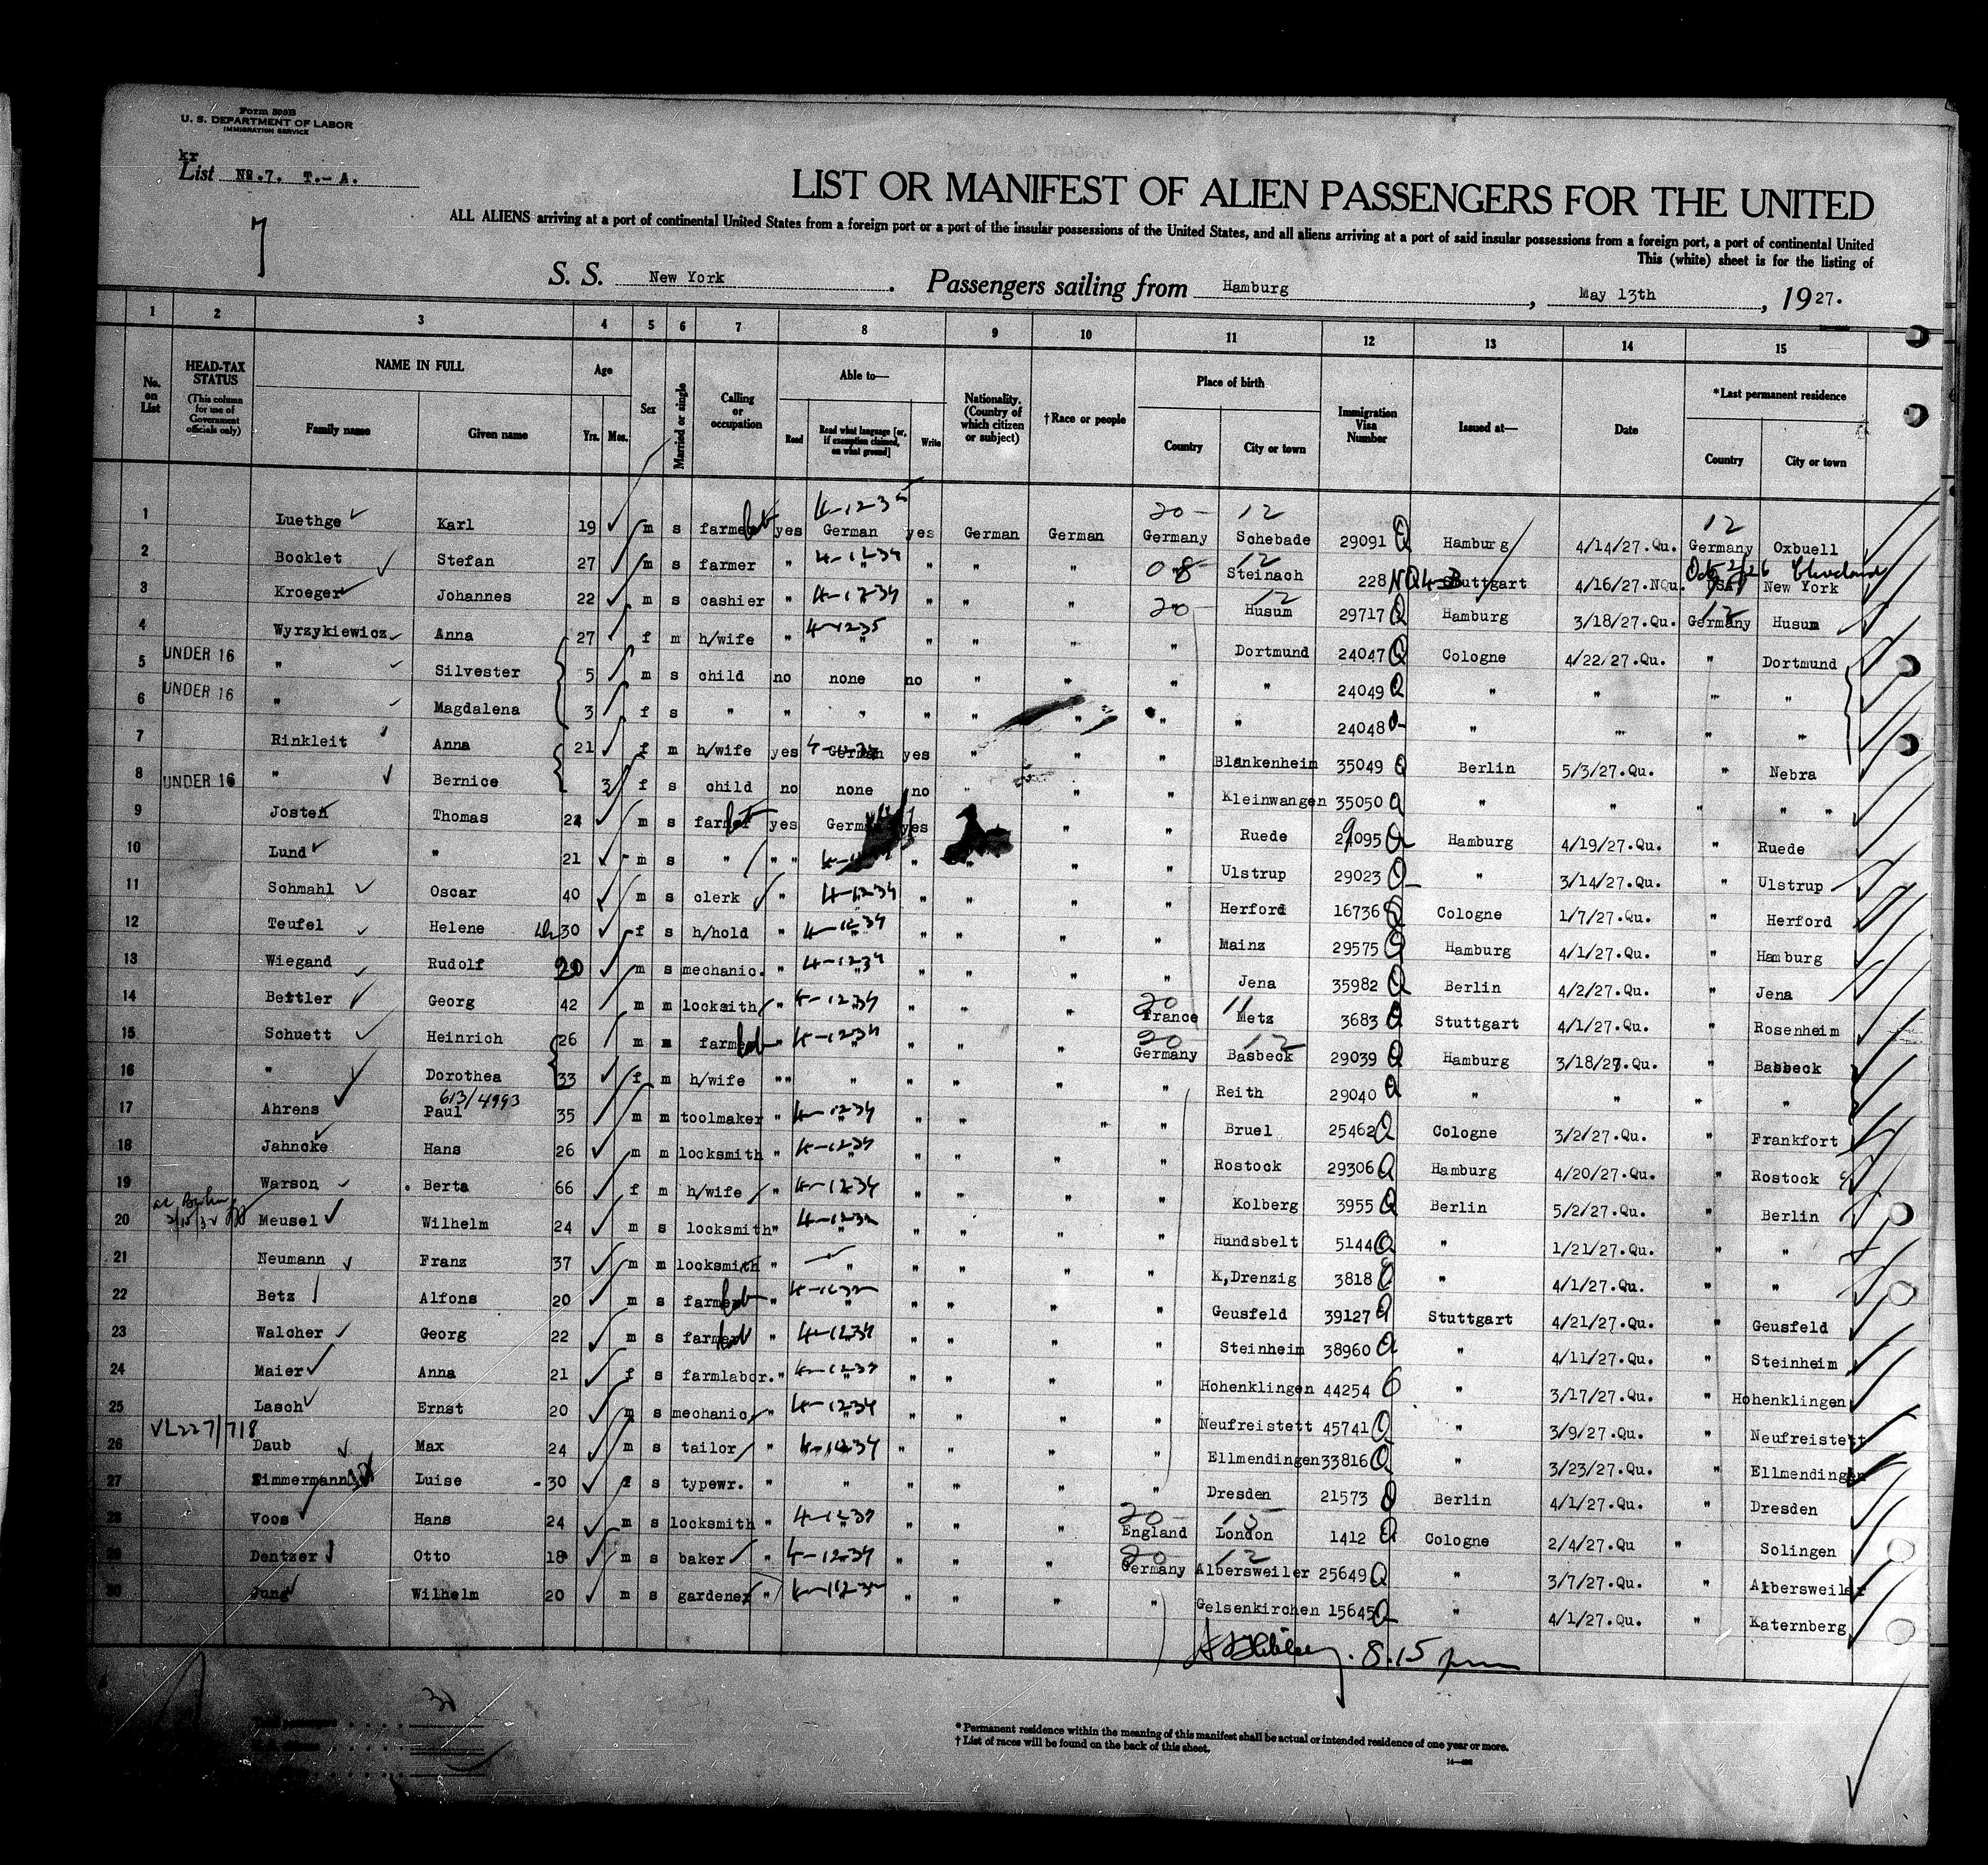 Form 500B
U. S. DEPARTMENT OF LABOR
IMMIGRATION SERVICE
kr
List No.7. T.- A.
7
LIST OR MANIFEST OF ALIEN PASSENGERS FOR THE UNITED
ALL ALIENS arriving at a port of continental United States from a foreign port or a port of the insular possessions of the United States, and all aliens arriving at a port of said insular possessions from a foreign port, a port of continental United
This (white) sheet is for the listing of
S. S. New York. Passengers sailing from Hamburg, May 13th, 1927.
1 2 3 4 5 6 7 8 9 10 11 12 13 14 15
No. on List HEAD-TAX STATUS (This column for use of Government officials only) NAME IN FULL Family name Given name Age Yrs. Mos. Sex Married or single Calling or occupation Able to— Read Read what language [or, if exemption claimed, on what ground] Write Nationality. (Country of which citizen or subject) †Race or people Place of birth Country City or town Immigration Visa Number Issued at— Date *Last permanent residence Country City or town
4-1235 20- 12 12
1 Luethge Karl 19 m s farmer yes German yes German German Germany Schebade 29091 Q Hamburg 4/14/27.Qu. Germany Oxbuell
2 Booklet Stefan 27 m s farmer " 4-1234 " " " 08 12 Steinach 228 NQ Stuttgart 4/16/27.NQu. Cleveland New York
3 Kroeger Johannes 22 m s cashier " 4-1234 " " " 20 12 Husum 29717 Q Hamburg 3/18/27.Qu. 12 Germany Husum
4 Wyrzykiewicz Anna 27 f m h/wife " 4-1235 " " " " Dortmund 24047 Q Cologne 4/22/27.Qu. " Dortmund
5 UNDER 16 " Silvester 5 m s child no none no " " " " 24049 Q " " " "
6 UNDER 16 " Magdalena 3 f s " " " " " " " " 24048 " " " "
7 Rinkleit Anna 21 f m h/wife yes German yes " " " Blankenheim 35049 Q Berlin 5/3/27.Qu. " Nebra
8 UNDER 16 " Bernice f s child no none no " " " Kleinwangen 35050 Q " " " "
9 Josten Thomas m s farmer yes German yes " " Ruede 29095 Q Hamburg 4/19/27.Qu. " Ruede
10 Lund " 21 m s " " " " " " Ulstrup 29023 Q " 3/14/27.Qu. " Ulstrup
11 Schmahl Oscar 40 m s clerk " 4-1234 " " " " Herford 16736 Q Cologne 1/7/27.Qu. " Herford
12 Teufel Helene 30 f s h/hold " 4-1234 " " " " Mainz 29575 Q Hamburg 4/1/27.Qu. " Hamburg
13 Wiegand Rudolf 20 m s mechanic. " 4-1234 " " " " Jena 35982 Q Berlin 4/2/27.Qu. " Jena
14 Bettler Georg 42 m m locksmith " 4-1234 " " " 20 France 11 Metz 3683 Q Stuttgart 4/1/27.Qu. " Rosenheim
15 Schuett Heinrich 26 m m farmer " 4-1234 " " " 20 Germany 12 Basbeck 29039 Q Hamburg 3/18/27.Qu. " Basbeck
16 " Dorothea 33 f m h/wife " " " " " " " Reith 29040 Q " " " "
613/4993
17 Ahrens Paul 35 m m toolmaker " 4-1234 " " " " Bruel 25462 Q Cologne 3/2/27.Qu. " Frankfort
18 Jahncke Hans 26 m m locksmith " 4-1234 " " " " Rostock 29306 Q Hamburg 4/20/27.Qu. " Rostock
19 Warson Berta 66 f m h/wife " 4-1234 " " " " Kolberg 3955 Q Berlin 5/2/27.Qu. " Berlin
20 Meusel Wilhelm 24 m s locksmith " 4-1232 " " " " Hundsbelt 5144 Q " 1/21/27.Qu. " "
21 Neumann Franz 37 m m locksmith " " " " " " K,Drenzig 3818 Q " 4/1/27.Qu. " "
22 Betz Alfons 20 m s farmer " " " " " " Geusfeld 39127 Q Stuttgart 4/21/27.Qu. " Geusfeld
23 Walcher Georg 22 m s farmer " 4-1234 " " " " Steinheim 38960 Q " 4/11/27.Qu. " Steinheim
24 Maier Anna 21 f s farmlabor. " 4-1234 " " " " Hohenklingen 44254 " 3/17/27.Qu. " Hohenklingen
25 Lasch Ernst 20 m s mechanic " 4-1234 " " " " Neufreistett 45741 Q " 3/9/27.Qu. " Neufreistett
VL227/718
26 Daub Max 24 m s tailor " 4-1234 " " " " Ellmendingen 33816 Q " 3/23/27.Qu. " Ellmendingen
27 Zimmermann Luise 30 f s typewr. " " " " " " Dresden 21573 Q Berlin 4/1/27.Qu. " Dresden
28 Voos Hans 24 m s locksmith " 4-1234 " " " 20- England 15 London 1412 Q Cologne 2/4/27.Qu " Solingen
29 Dentzer Otto 18 m s baker " 4-1234 " " " 20 Germany 12 Albersweiler 25649 Q " 3/7/27.Qu. " Albersweiler
30 Jung Wilhelm 20 m s gardener " " " " " Gelsenkirchen 15645 Q " 4/1/27.Qu. " Katernberg
8.15 pm
30
* Permanent residence within the meaning of this manifest shall be actual or intended residence of one year or more.
† List of races will be found on the back of this sheet.